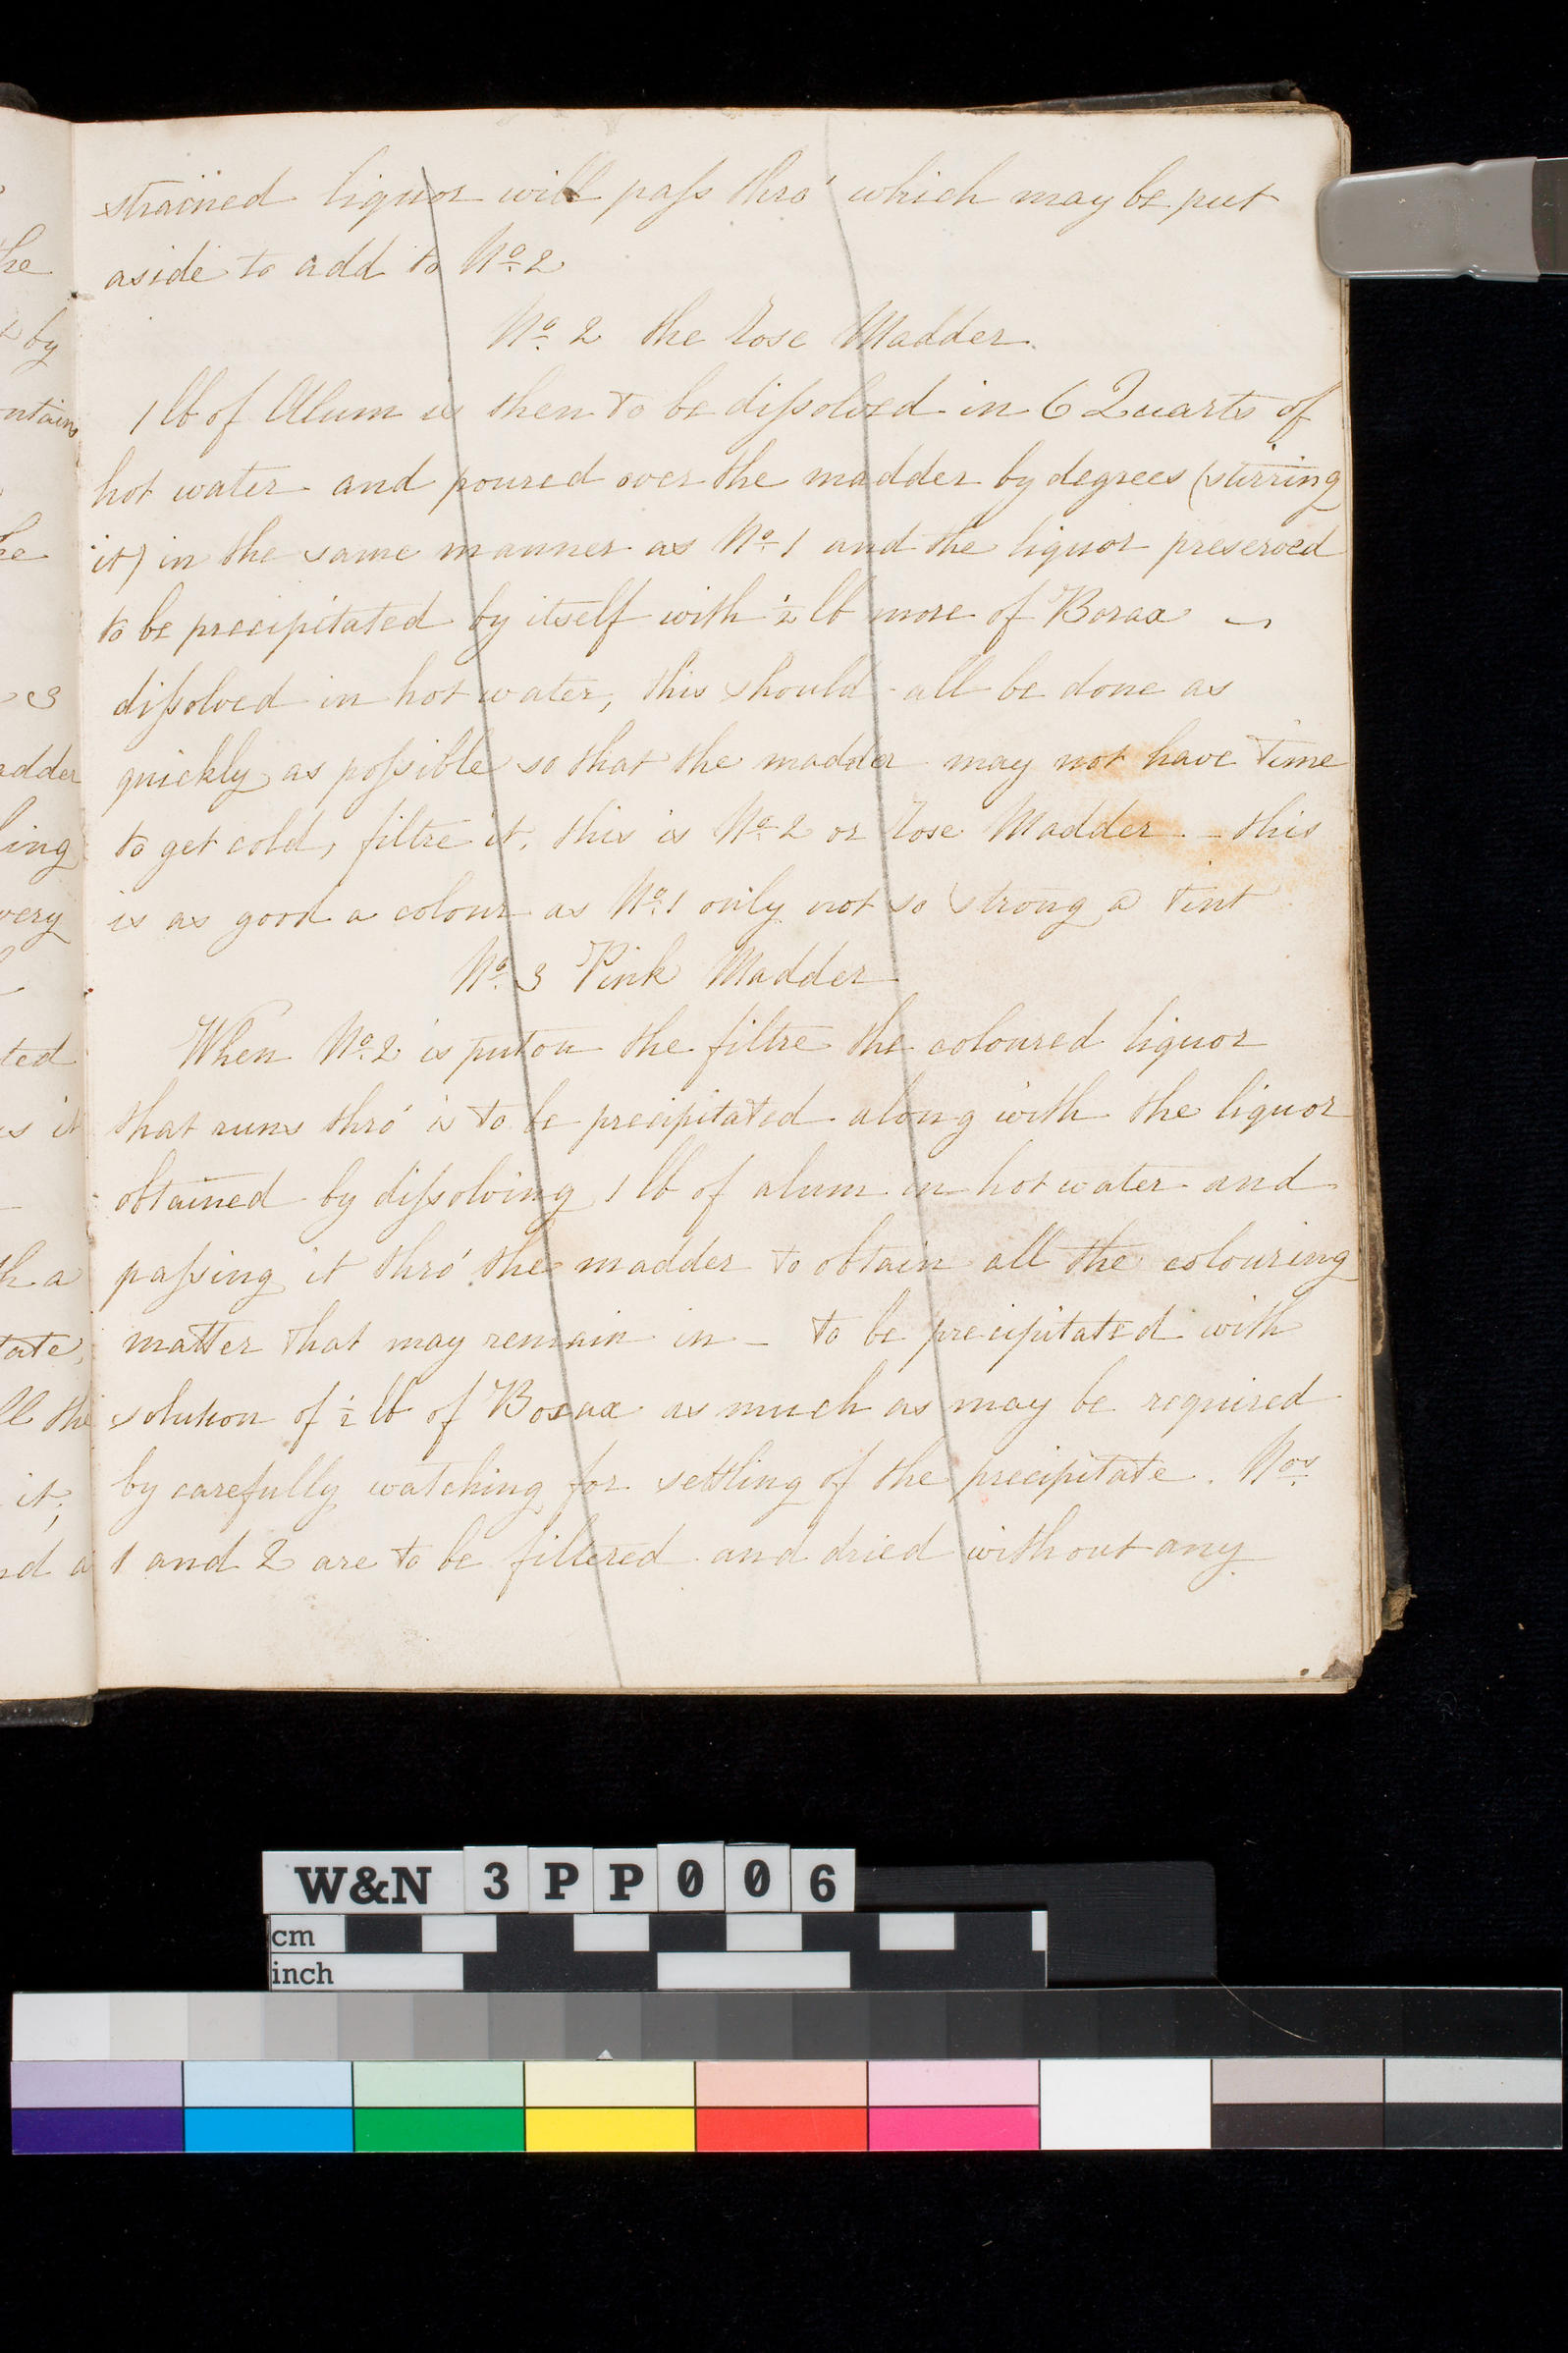 strained liquor will paſs thro' which may be put
aside to add to No. 2
No. 2 the Rose Madder.
1 lb of Alum is then to be diſsolved in 6 Quarts of
hot water and poured over the madder by degrees (stirring
it) in the same manner as No. 1 and the liquor preserved
to be precipitated by itself with ½ lb more of Borax
diſsolved in hot water, this should all be done as
quickly as poſsible so that the madder may not have time
to get cold, filtre it, this is No. 2 or Rose Madder - this
is as good a colour as No. 1 only not so strong a tint
No. 3 Pink Madder
When No. 2 is put on the filtre the coloured liquor
that runs thro' is to be precipitated along with the liquor
obtained by diſsolving 1 lb of alum in hot water and
paſsing it thro' the madder to obtain all the colouring
matter that may remain in - to be precipitated with
solution of ½ lb of Borax as much as may be required
by carefully watching for settling of the precipitate. Nos.
1 and 2 are to be filtered and dried without any
he
by
ntains
he
3
adder
ing
very
ted
is it
h a
tate,
ll the
it;
nd a
W&N 3PP006
cm
inch